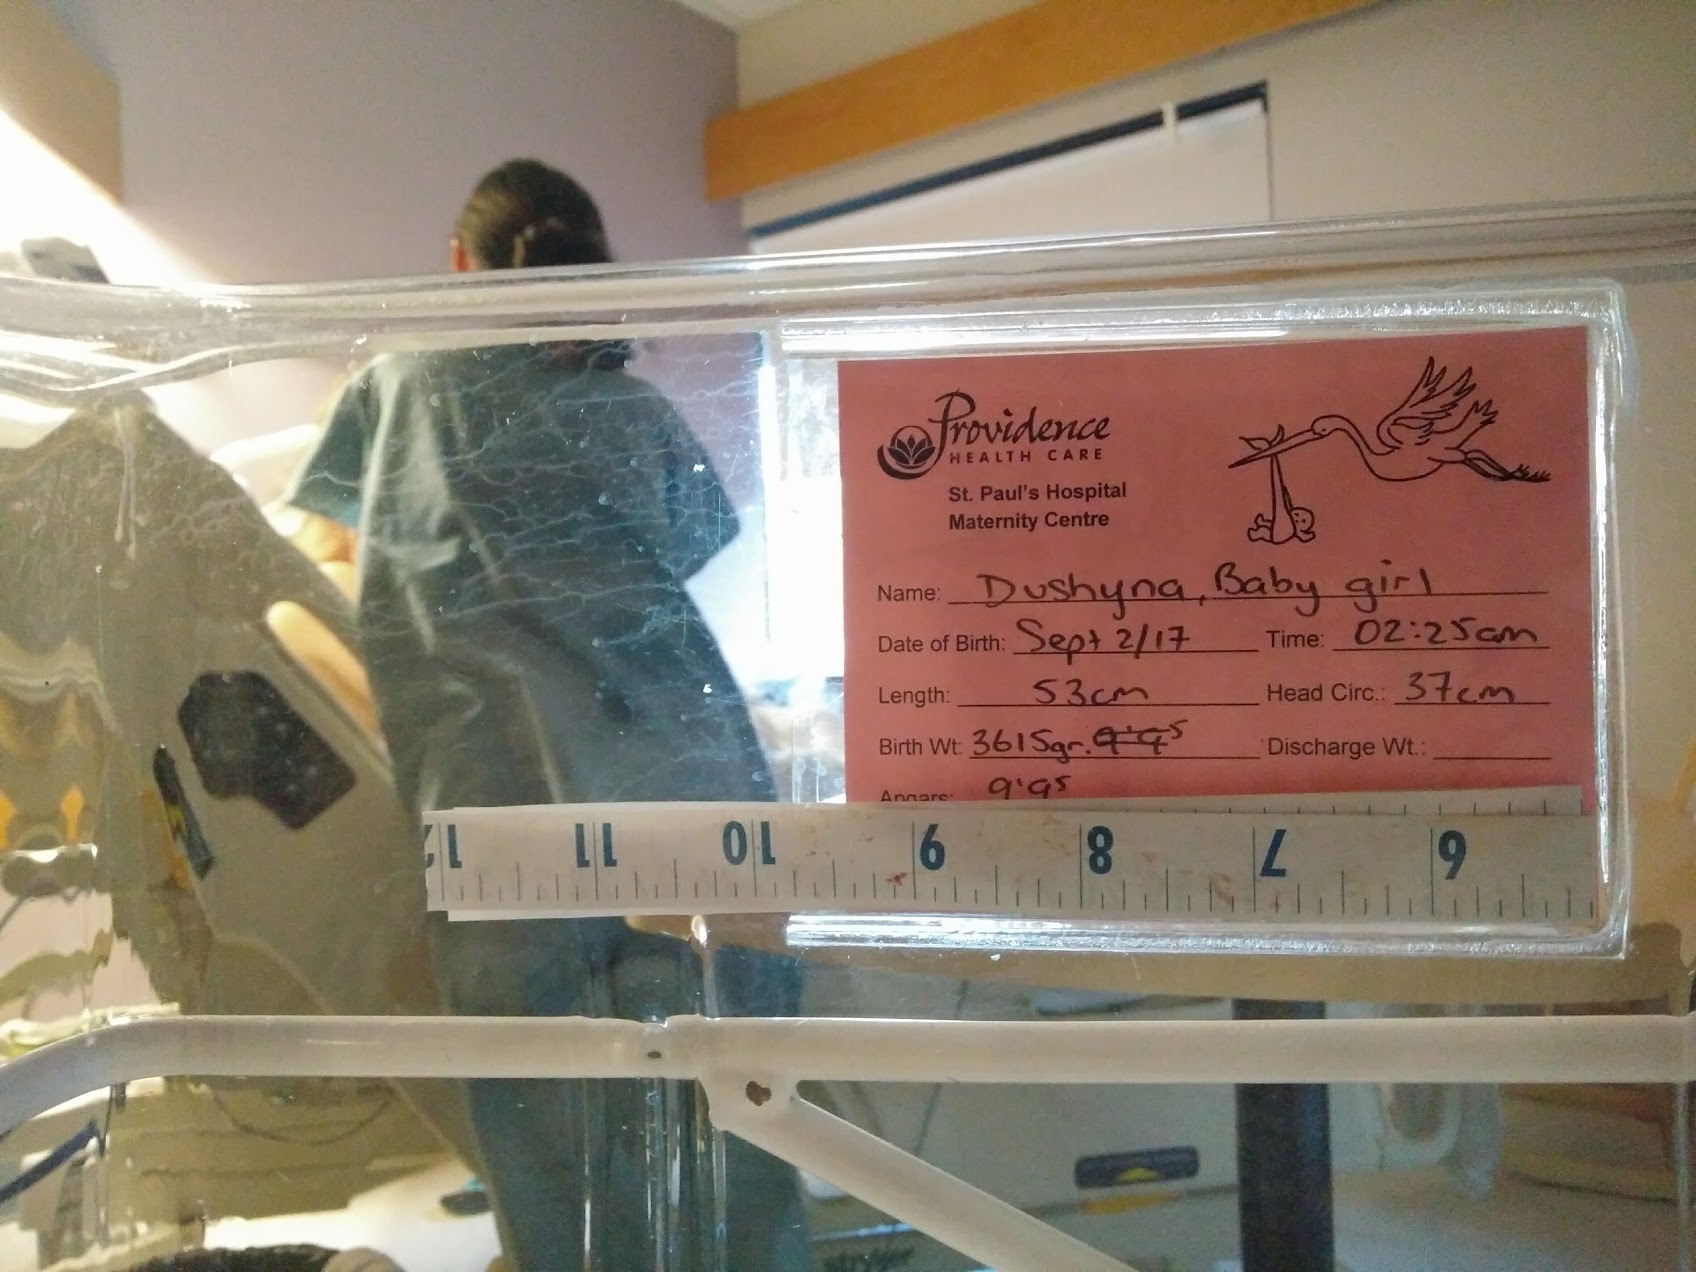 Providence
HEALTH CARE
St. Paul's Hospital
Maternity Centre
Name: Dushyna, Baby girl
Date of Birth: Sept 2/17 Time: 02:25am
Length: 53cm Head Circ.: 37cm
Birth Wt: 3615gr. 9'9⁵ Discharge Wt.:
Apgars: 9'9⁵
12 11 10 9 8 7 6